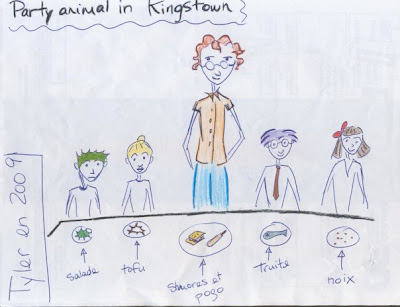 Party animal in Kingstown
Tyler en 2009
salade
tofu
Smores et
pogo
truite
noix